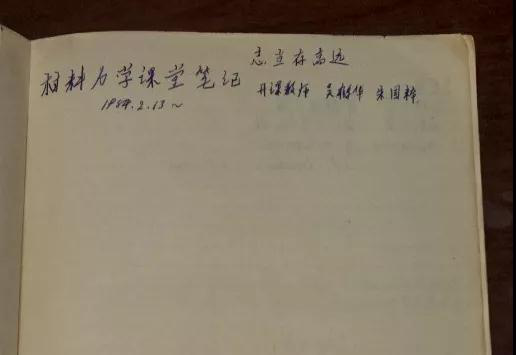 志当存高远
材料力学课堂笔记
开课教师 吴 华 朱国
1989.2.13～